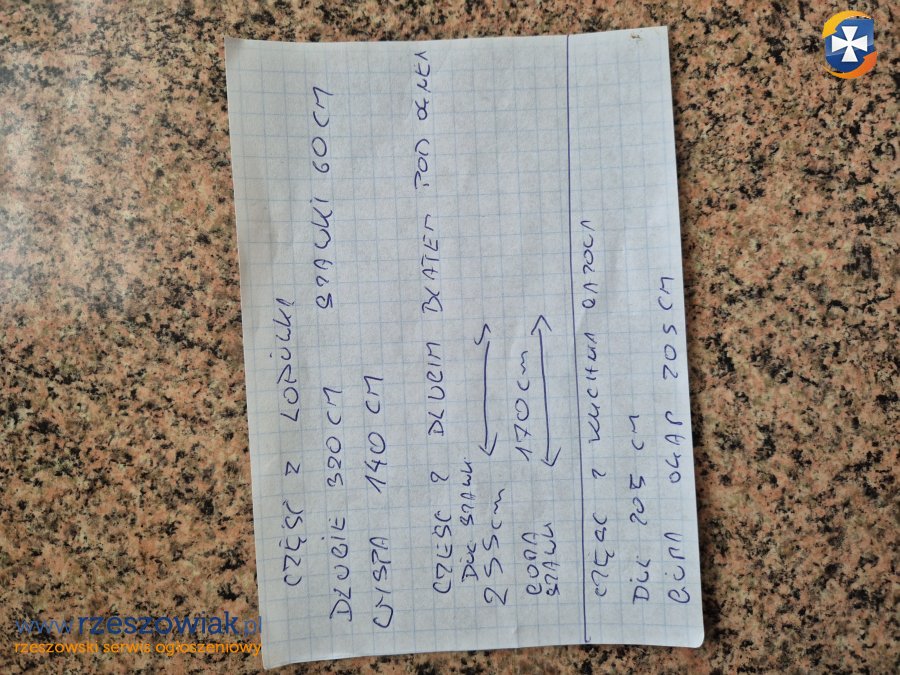 CZĘŚĆ Z LODÓWKI
DŁUGIE 320 CM SZAWKI 60 CM
CZYSTA 140 CM
CZĘŚĆ Z DŁUGIM BLATEM POD OKNEM
DÓŁ SZAWK
255 cm
GÓRA 170 cm
SZAWK
CZĘŚĆ Z KUCHNI GAZOWA
DÓŁ 205 CM
GÓRA OKAP 205 CM
www.rzeszowiak.pl
rzeszowski serwis ogłoszeniowy